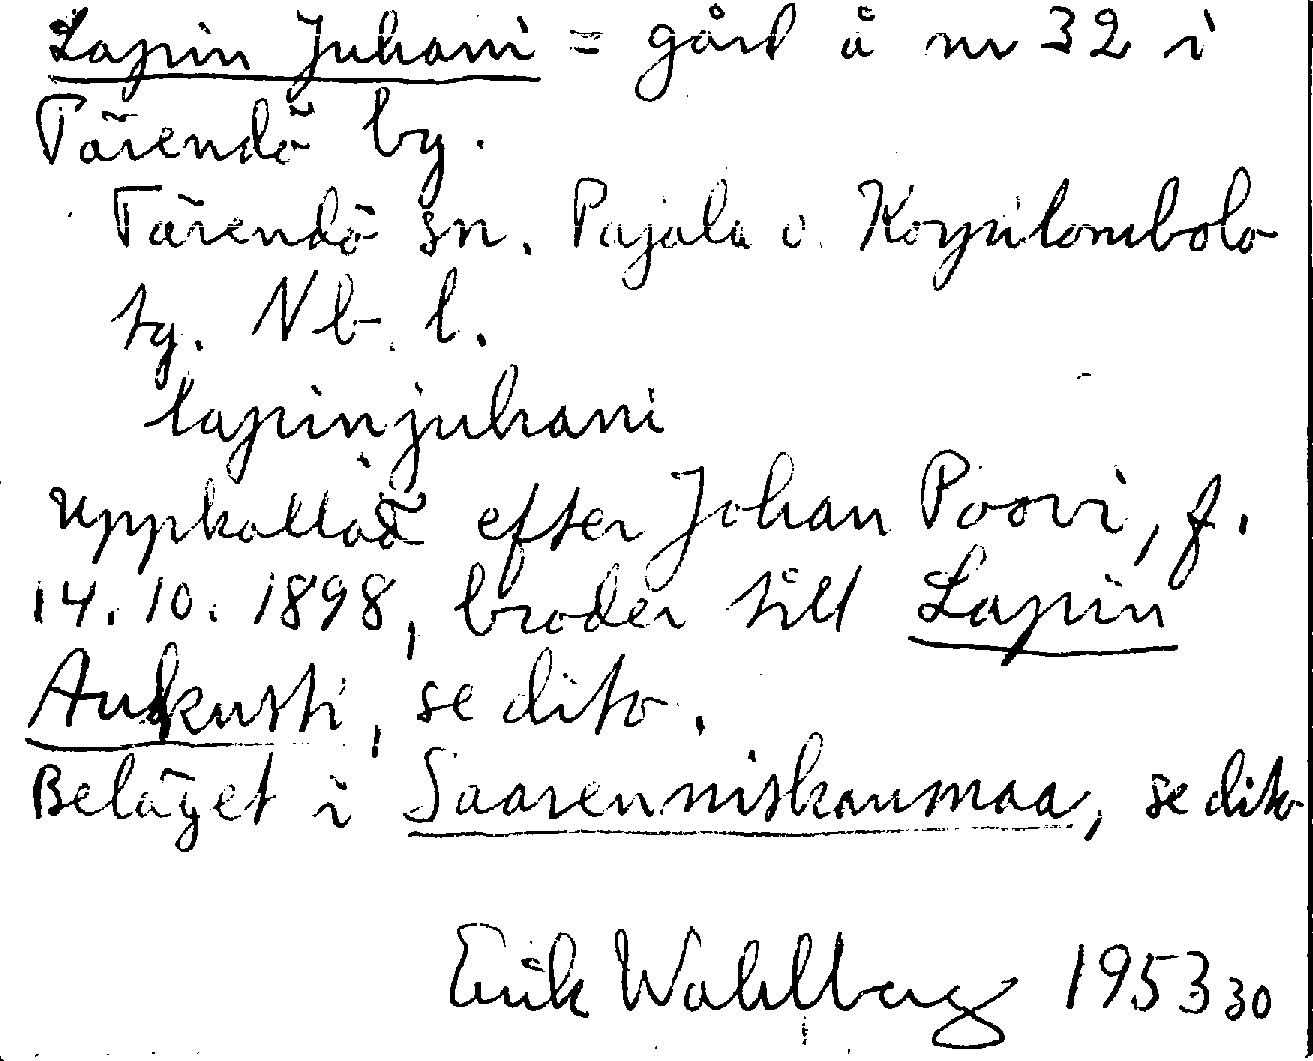 Lapin Juhani = gård å nr 32 i
Tärendö by.
Tärendö sn. Pajala o. Korpilombolo
tg. Nb. l.
lapinjuhani
Uppkallad efter Johan Poovi, f.
14.10.1898, broder till Lapin
Aukusti, se dito.
Beläget i Saarenniskanmaa, se dito
Erik Wahlberg 1953 30